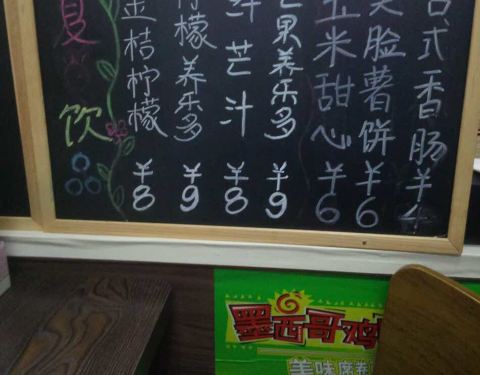 夏
饮
金桔柠檬¥8
柠檬养乐多¥9
鲜芒汁¥8
芒果养乐多¥9
玉米甜心¥6
笑脸薯饼¥6
台式香肠¥4
墨西哥鸡
美味席卷